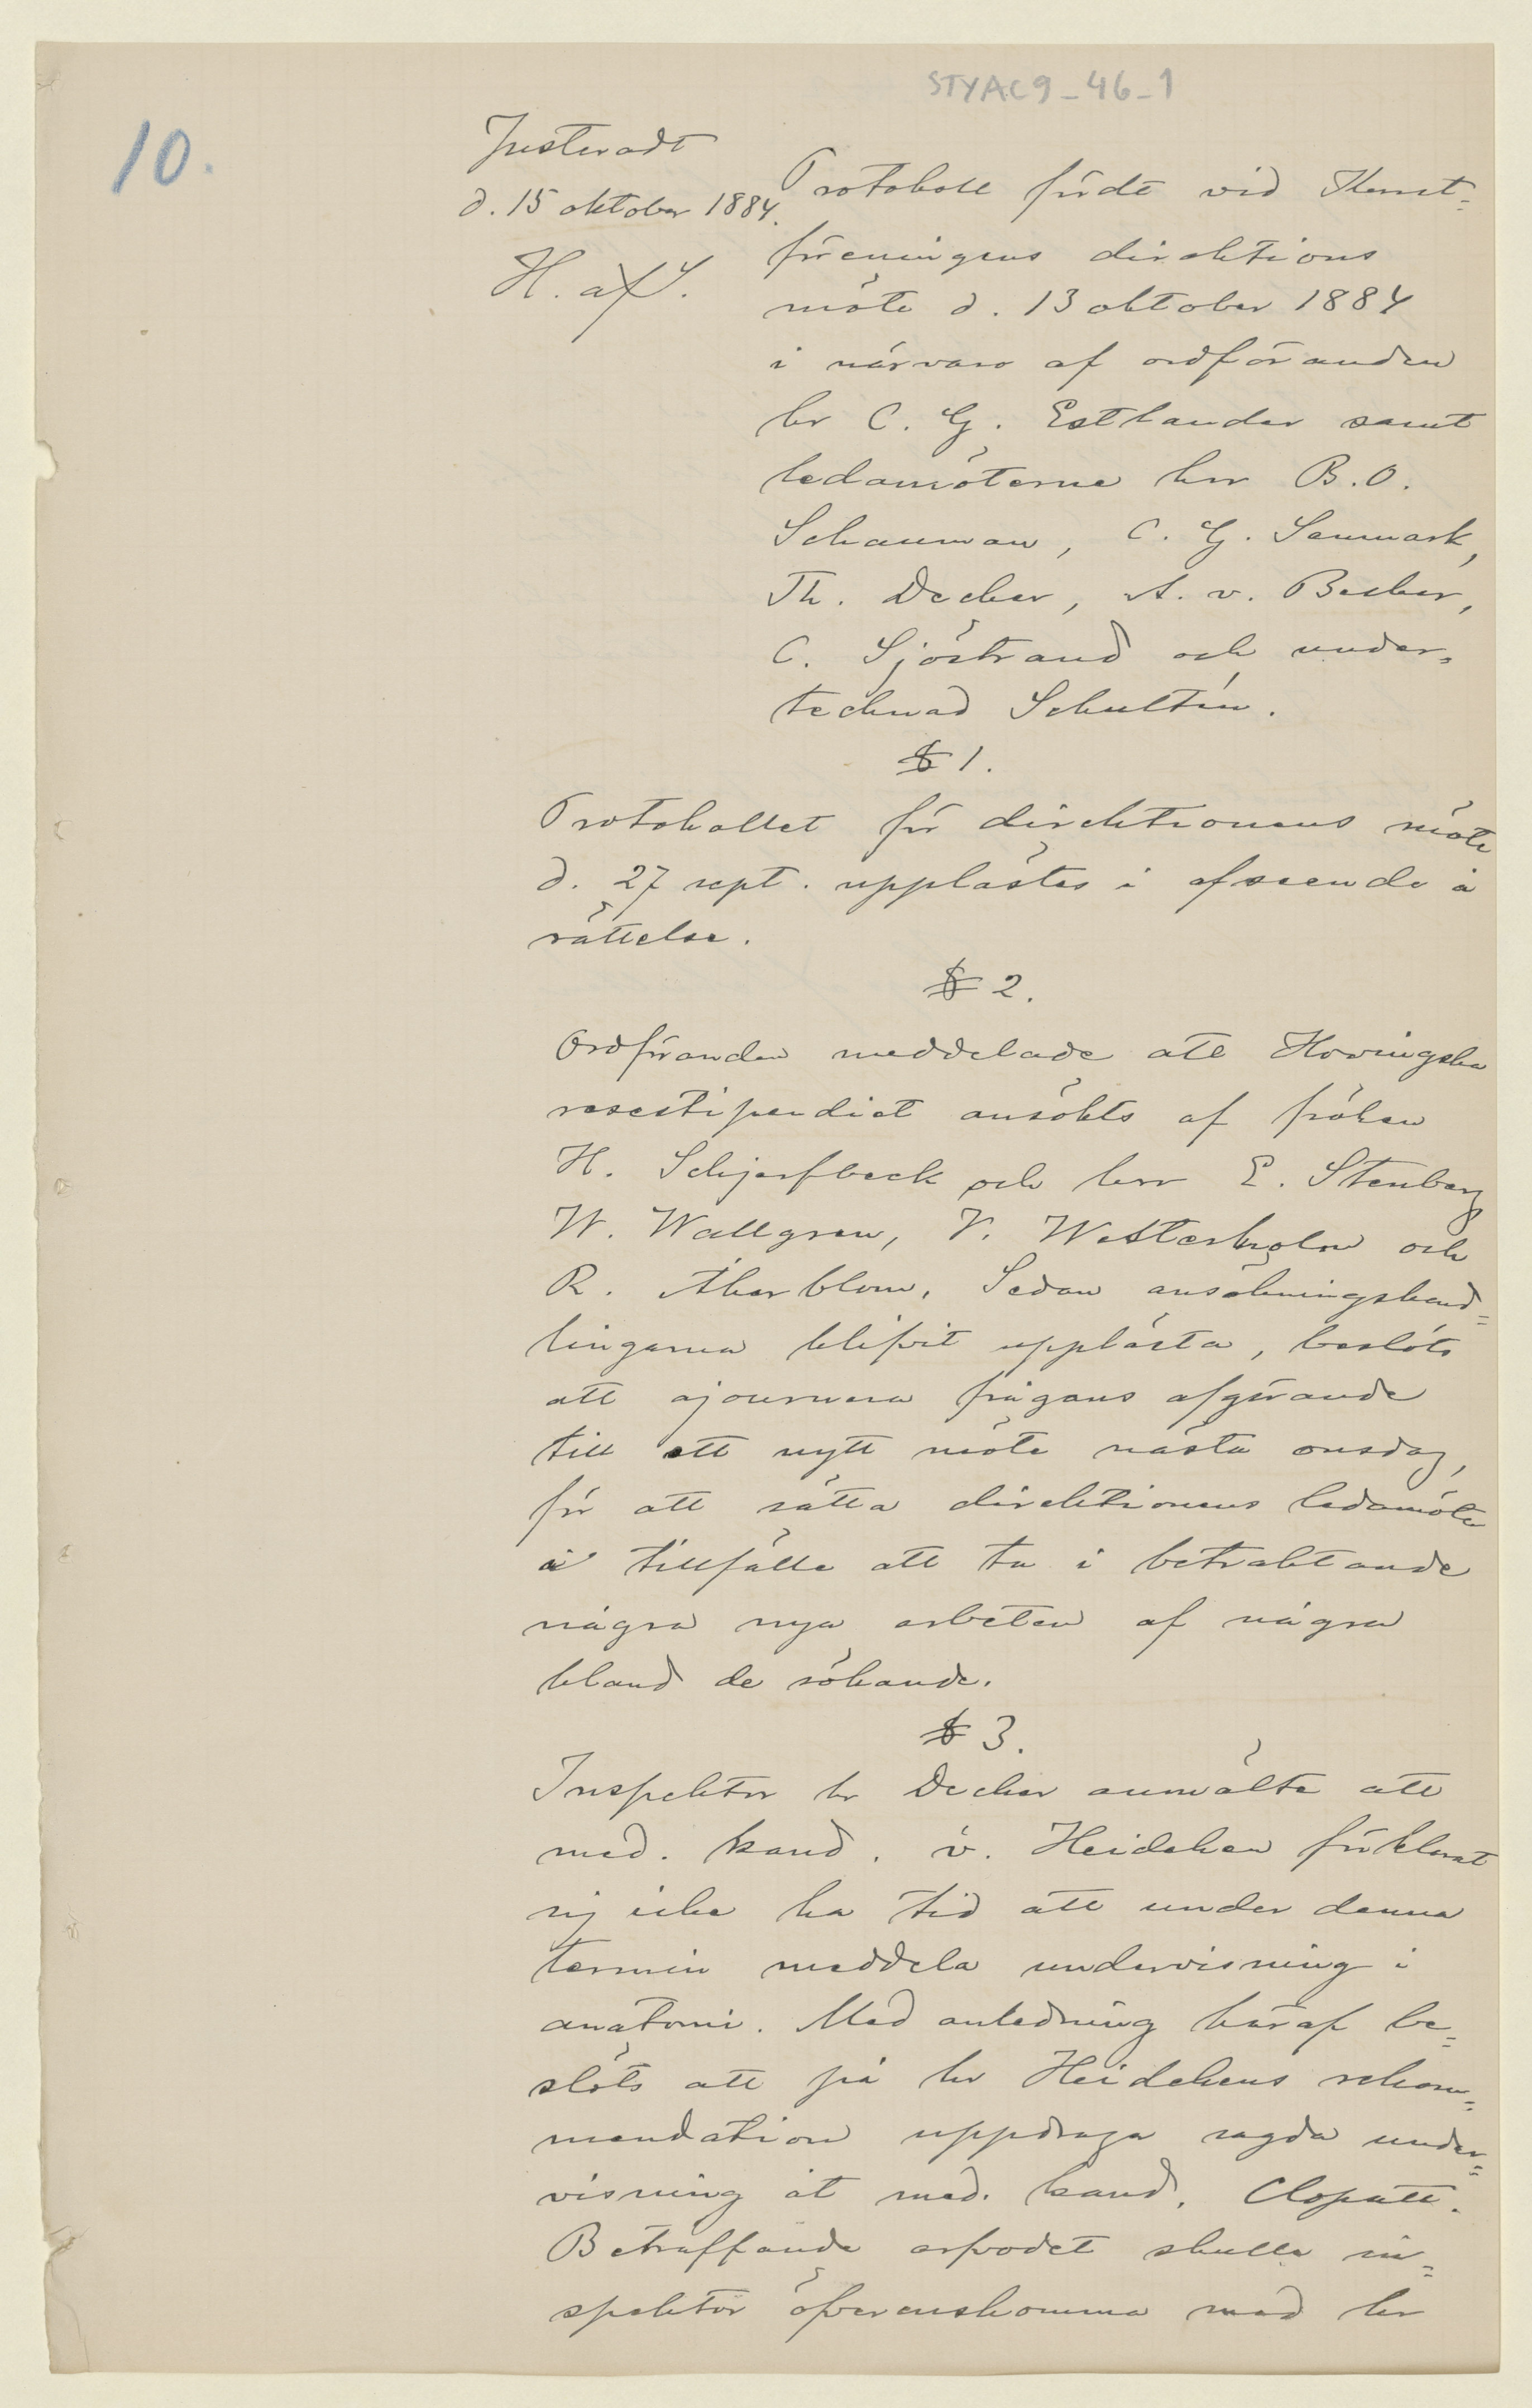 STYAC9_46_1
10.
Justeradt
d. 15 oktober 1884.
H. af S.
Protokoll fördt vid Konst-
föreningens direktions
möte d. 13 oktober 1884
i närvaro af ordföranden
hr C. G. Estlander samt
ledamöterne hrr B. O.
Schauman, C. G. Sanmark,
Th. Decker, A. v. Becker,
C. Sjöstrand och under-
tecknad Schultén.
§ 1.
Protokollet för direktionens möte
d. 27 sept. upplästes i afseende å
rättelse.
§ 2.
Ordföranden meddelade att Hovingska
resestipendiet ansökts af fröken
H. Schjerfbeck och hrr E. Stenberg
W. Wallgren, V. Westerholm och
R. Åkerblom. Sedan ansökningshand-
lingarna blifvit upplästa, beslöts
att ajournera frågans afgörande
till ett nytt möte nästa onsdag,
för att sätta direktionens ledamöter
i tillfälle att ta i betraktande
några nya arbeten af några
bland de sökande.
§ 3.
Inspektor hr Decker anmälte att
med. kand. v. Heideken förklarat
sig icke ha tid att under denna
termin meddela undervisning i
anatomi. Med anledning häraf be-
slöts att på hr Heidekens rekom-
mendation uppdraga sagda under-
visning åt med. kand. Clopatt.
Beträffande arfvodet skulle in-
spektor öfverenskomma med hr